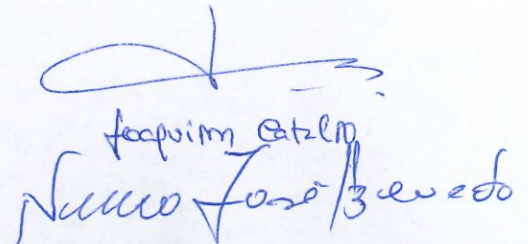 Joaquim Catalão
Nuno José Azevedo